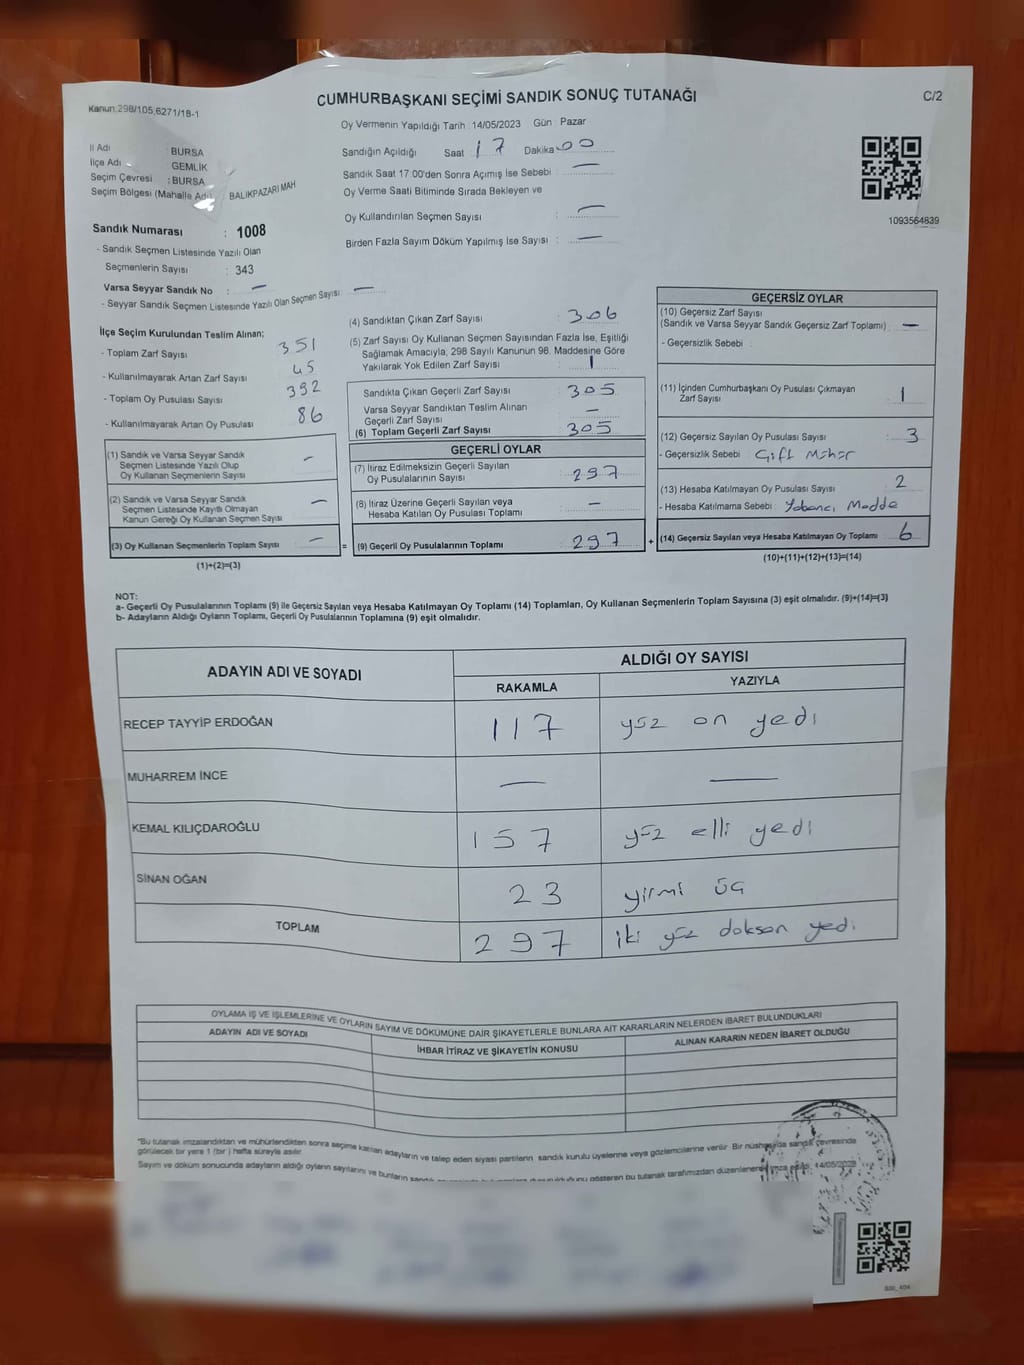 Kanun:298/105;6271/18-1
CUMHURBAŞKANI SEÇİMİ SANDIK SONUÇ TUTANAĞI
C/2
Oy Vermenin Yapıldığı Tarih :14/05/2023 Gün : Pazar
İl Adı : BURSA
İlçe Adı : GEMLİK
Seçim Çevresi : BURSA
Seçim Bölgesi (Mahalle Adı) : BALIKPAZARI MAH
Sandığın Açıldığı Saat 17 Dakika 00
Sandık Saat 17.00'den Sonra Açımış İse Sebebi : —
Oy Verme Saati Bitiminde Sırada Bekleyen ve
Oy Kullandırılan Seçmen Sayısı : —
Birden Fazla Sayım Döküm Yapılmış İse Sayısı : —
1093564839
Sandık Numarası : 1008
- Sandık Seçmen Listesinde Yazılı Olan
Seçmenlerin Sayısı : 343
Varsa Seyyar Sandık No : —
- Seyyar Sandık Seçmen Listesinde Yazılı Olan Seçmen Sayısı: —
İlçe Seçim Kurulundan Teslim Alınan;
- Toplam Zarf Sayısı : 351
- Kullanılmayarak Artan Zarf Sayısı : 45
- Toplam Oy Pusulası Sayısı : 392
- Kullanılmayarak Artan Oy Pusulası : 86
(1) Sandık ve Varsa Seyyar Sandık
Seçmen Listesinde Yazılı Olup
Oy Kullanan Seçmenlerin Sayısı : —
(2) Sandık ve Varsa Seyyar Sandık
Seçmen Listesinde Kayıtlı Olmayan
Kanun Gereği Oy Kullanan Seçmen Sayısı : —
(3) Oy Kullanan Seçmenlerin Toplam Sayısı : —
(1)+(2)=(3)
(4) Sandıktan Çıkan Zarf Sayısı : 306
(5) Zarf Sayısı Oy Kullanan Seçmen Sayısından Fazla İse, Eşitliği
Sağlamak Amacıyla, 298 Sayılı Kanunun 98. Maddesine Göre
Yakılarak Yok Edilen Zarf Sayısı : 1
Sandıkta Çıkan Geçerli Zarf Sayısı : 305
Varsa Seyyar Sandıktan Teslim Alınan
Geçerli Zarf Sayısı : —
(6) Toplam Geçerli Zarf Sayısı : 305
GEÇERLİ OYLAR
(7) İtiraz Edilmeksizin Geçerli Sayılan
Oy Pusulalarının Sayısı : 297
(8) İtiraz Üzerine Geçerli Sayılan veya
Hesaba Katılan Oy Pusulası Toplamı : —
= (9) Geçerli Oy Pusulalarının Toplamı : 297
GEÇERSİZ OYLAR
(10) Geçersiz Zarf Sayısı
(Sandık ve Varsa Seyyar Sandık Geçersiz Zarf Toplamı) : —
- Geçersizlik Sebebi :
(11) İçinden Cumhurbaşkanı Oy Pusulası Çıkmayan
Zarf Sayısı : 1
(12) Geçersiz Sayılan Oy Pusulası Sayısı : 3
- Geçersizlik Sebebi : Çift Mühür
(13) Hesaba Katılmayan Oy Pusulası Sayısı : 2
- Hesaba Katılmama Sebebi : Yabancı Madde
+ (14) Geçersiz Sayılan veya Hesaba Katılmayan Oy Toplamı : 6
(10)+(11)+(12)+(13)=(14)
NOT:
a- Geçerli Oy Pusulalarının Toplamı (9) ile Geçersiz Sayılan veya Hesaba Katılmayan Oy Toplamı (14) Toplamları, Oy Kullanan Seçmenlerin Toplam Sayısına (3) eşit olmalıdır. (9)+(14)=(3)
b- Adayların Aldığı Oyların Toplamı, Geçerli Oy Pusulalarının Toplamına (9) eşit olmalıdır.
ADAYIN ADI VE SOYADI ALDIĞI OY SAYISI
RAKAMLA YAZIYLA
RECEP TAYYİP ERDOĞAN 117 yüz on yedi
MUHARREM İNCE — —
KEMAL KILIÇDAROĞLU 157 yüz elli yedi
SİNAN OĞAN 23 yirmi üç
TOPLAM 297 iki yüz doksan yedi
OYLAMA İŞ VE İŞLEMLERİNE VE OYLARIN SAYIM VE DÖKÜMÜNE DAİR ŞİKAYETLERLE BUNLARA AİT KARARLARIN NELERDEN İBARET BULUNDUKLARI
ADAYIN ADI VE SOYADI İHBAR İTİRAZ VE ŞİKAYETİN KONUSU ALINAN KARARIN NEDEN İBARET OLDUĞU
"Bu tutanak imzalandıktan ve mühürlendikten sonra seçime katılan adayların ve talep eden siyasi partilerin sandık kurulu üyelerine veya gözlemcilerine verilir. Bir nüshası da sandık çevresinde
görülecek bir yere 1 (bir) hafta süreyle asılır.
Sayım ve döküm sonucunda adayların aldığı oyların sayılarını ve bunların gösteren bu tutanak tarafımızdan düzenlenerek imza edildi. 14/05/2023